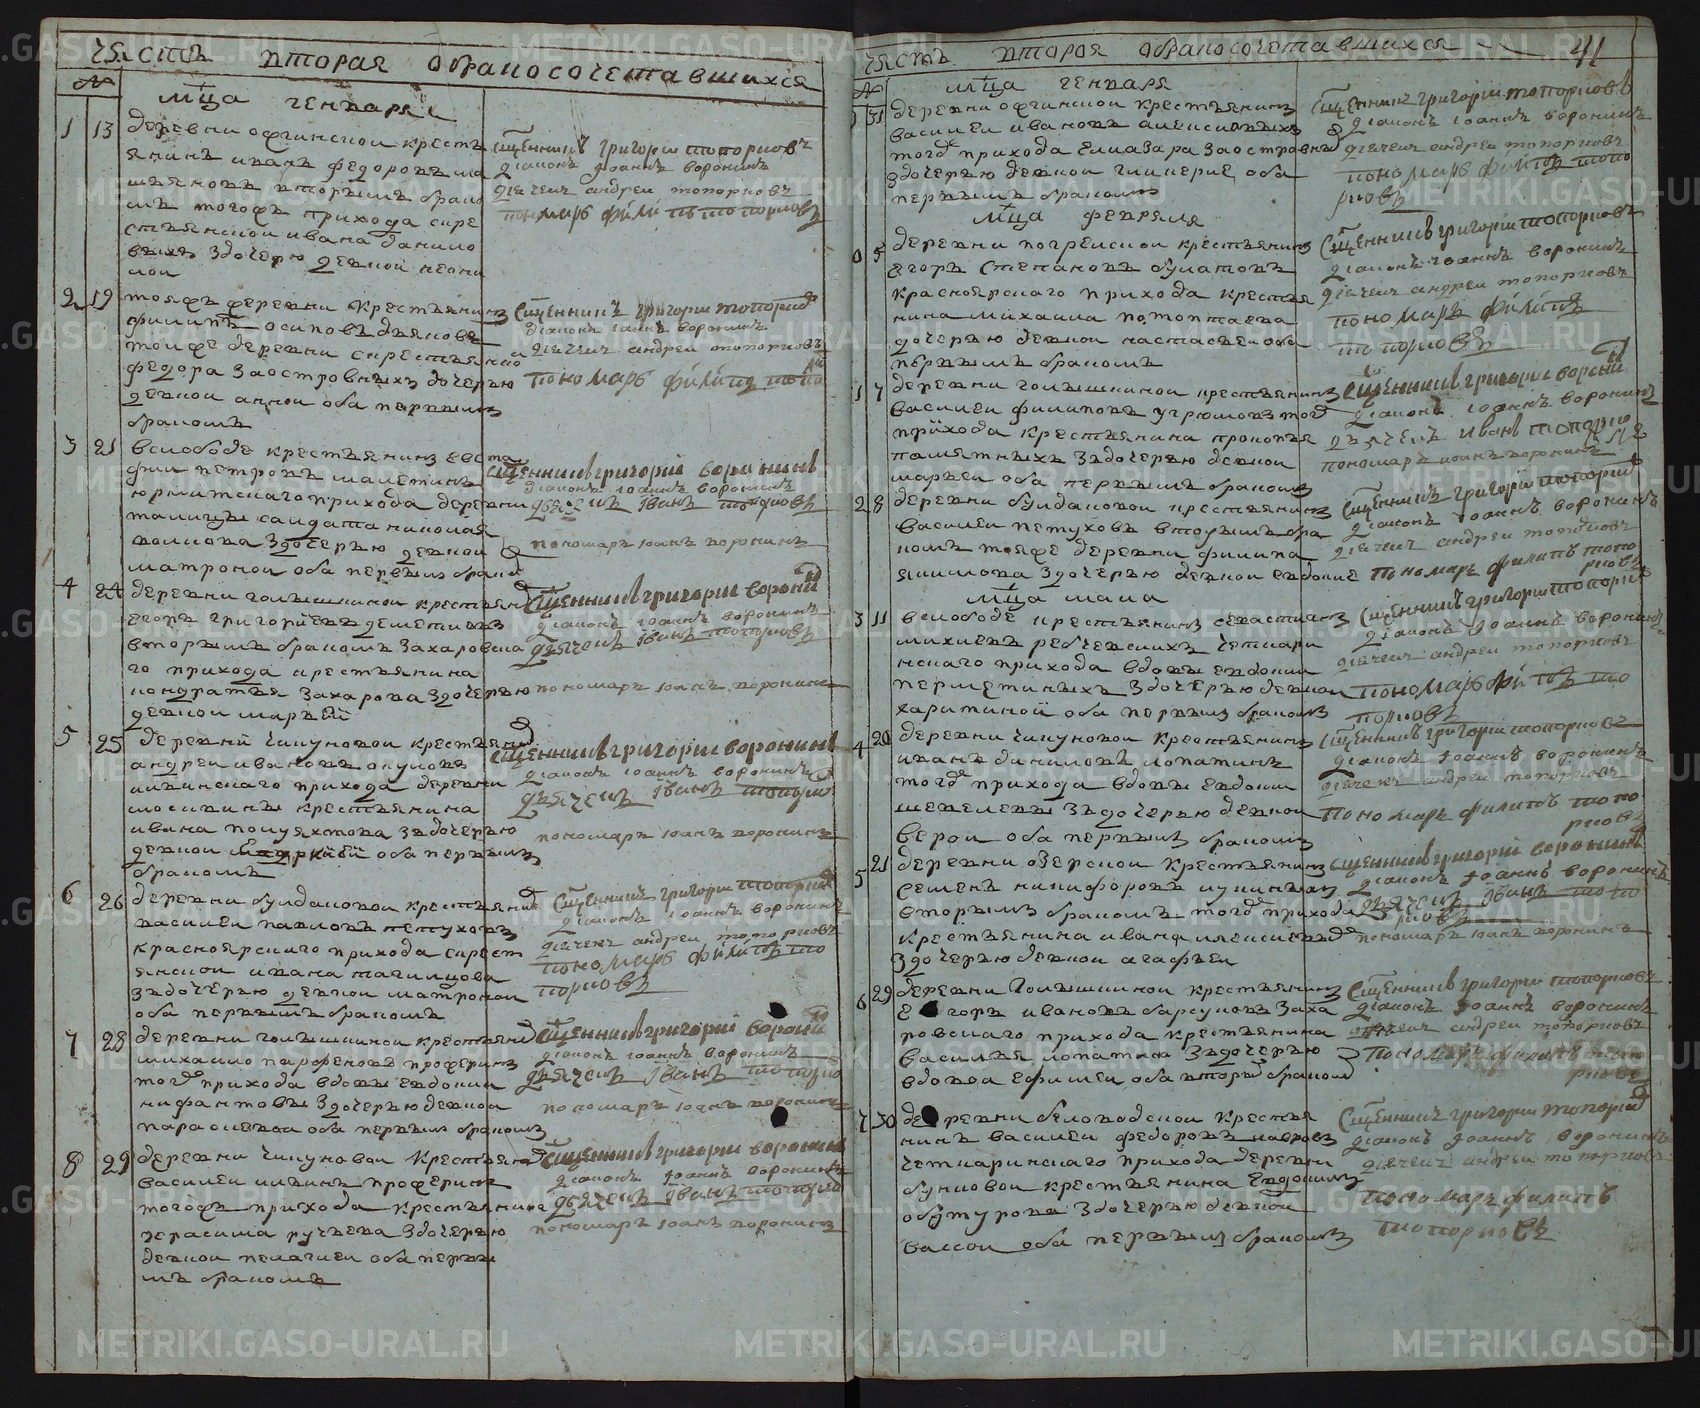 часть вторая обракосочетавшихся
№
мца генваря
1 13 деревни офчинской кресть
янинъ иванъ федоровъ
вторымъ брако
мъ тогожъ прихода скре
стьянской ивана данило
выхъ здочерью девкой
сщенникъ григорий топорковъ
диаконъ иоаннъ воронинъ
дьячекъ андрей топорковъ
пономарь филипъ топорковъ
2 19 тояжъ деревни крестьянинъ
филипъ осиповъ дьяковъ
тоиже деревни скрестьянской
федора заостровныхъ дочерью
девкой анной оба первымъ
бракомъ
сщенникъ григорий топорков
диаконъ иоаннъ воронинъ
дьячекъ андрей топорковъ
пономарь филипъ топо
3 21 вслободе крестьянинъ евста
фий петровъ
прихода деревни
салдата николая
волкова здочерью девкой
матроной оба первымъ брако
сщенникъ григорий воронинъ
диаконъ иоаннъ воронинъ
дьячекъ иванъ топорковъ
пономарь иоанъ воронинъ
4 24 деревни голышкиной крестьян
егоръ григорьевъ
вторымъ бракомъ захаровска
го прихода крестьянина
кондратья захарова здочерью
девкой марьей
сщенникъ григорий ворони
диаконъ иоаннъ воронинъ
дьячекъ иванъ топорковъ
пономарь иоанъ воронинъ
5 25 деревни чикуновой крестьянин
андрей ивановъ окуловъ
прихода деревни
крестьянина
ивана полуяхтова здочерью
девкой оба первымъ
бракомъ
сщенникъ григорий воронинъ
диаконъ иоаннъ воронинъ
дьячекъ иванъ топорко
пономарь иоанъ воронинъ
6 26 деревни булдаковой крестьянин
василей павловъ петуховъ
красноярского прихода скрест
янской ивана
здочерью девкой матроной
оба первымъ бракомъ
сщенникъ григорий топорков
диаконъ иоаннъ воронинъ
дьячекъ андрей топорковъ
пономарь филипъ то
порковъ
7 28 деревни голышкиной крестьяни
михайло парфеновъ
тогож прихода вдовы евдокии
нифантовы здочерью девкой
парасковеей оба первымъ бракомъ
сщенникъ григорий ворони
диаконъ иоаннъ воронинъ
дьячекъ иванъ топорко
пономарь иоанъ воронинъ
8 29 деревни чикуновой крестьянин
василей
тогожъ прихода крестьянина
герасима ручьева здочерью
девкой пелагией оба первы
мъ бракомъ
сщенникъ григорий воронинъ
диаконъ иоаннъ воронинъ
дьячекъ иванъ топорко
пономарь иоанъ воронинъ
часть вторая обракосочетавшихся 41
№
мца генваря
31 деревни офчинской крестьянинъ
василей ивановъ алексиевыхъ
тогож прихода елиазара заостровных
здочерью девкой гликерией оба
первымъ бракомъ
сщенникъ григорий топорковъ
диаконъ иоаннъ воронинъ
дьячекъ андрей топорковъ
пономарь филипъ топо
рковъ
мца февраля
0 5 деревни крестьянинъ
егоръ степановъ булатовъ
красноярскаго прихода крестья
нина михаила потоптаева
дочерью девкой настасьей оба
первымъ бракомъ
сщенникъ григорий топорковъ
диаконъ иоаннъ воронинъ
дьячекъ андрей топорковъ
пономарь филипъ
топорковъ
1 7 деревни голышкиной крестьянинъ
василей филиповъ угрюмовъ тогож
прихода крестьянина прокопья
памятныхъ здочерью девкой
марьей оба первымъ бракомъ
сщенникъ григорий ворони
диаконъ иоаннъ воронинъ
дьячекъ иванъ топорко
пономарь иоанъ воронинъ
2 8 деревни булдаковой крестьянинъ
василей петуховъ вторымъ бра
комъ тояже деревни филипа
якимова здочерью девкой евдокие
сщенникъ григорий топорков
диаконъ иоаннъ воронинъ
дьячекъ андрей топорковъ
пономарь филипъ топо
рковъ
мца маиа
3 11 вслободе крестьянинъ севастианъ
чемкари
нскаго прихода вдовы евдокии
здочерью девкой
харитиной оба первымъ бракомъ
сщенникъ григорий топорков
диаконъ иоаннъ воронинъ
дьячекъ андрей топорковъ
пономарь филипъ то
порковъ
4 20 деревни чикуновой крестьянинъ
иванъ даниловъ лопатинъ
тогож прихода вдовы евдокии
шевелевы здочерью девкой
верой оба первымъ бракомъ
сщенникъ григорий топорковъ
диаконъ иоаннъ воронинъ
дьячекъ андрей топорковъ
пономарь филипъ топо
рковъ
5 21 деревни озерской крестьянинъ
семенъ никифоровъ
вторымъ бракомъ тогож прихода
крестьянина ивана алексиевых
здочерью девкой агафьей
сщенникъ григорий воронинъ
диаконъ иоаннъ воронинъ
дьячекъ иванъ топо
рковъ
пономарь иоанъ воронинъ
6 29 деревни голышкиной крестьянинъ
егоръ ивановъ барсуковъ заха
ровскаго прихода крестьянина
василья лопатина здочерью
вдовой ефимьей оба вторым бракомъ
сщенникъ григорий топорковъ
диаконъ иоаннъ воронинъ
дьячекъ андрей топорковъ
пономарь филипъ топо
рковъ
7 30 деревни беловодской крестья
нинъ василей федоровъ
чемкаринскаго прихода деревни
буньковой крестьянина евдокима
обутурова здочерью девкой
вассой оба первымъ бракомъ
сщенникъ григорий топорков
диаконъ иоаннъ воронинъ
дьячекъ андрей топорковъ
пономарь филипъ
топорковъ
METRIKI.GASO-URAL.RU